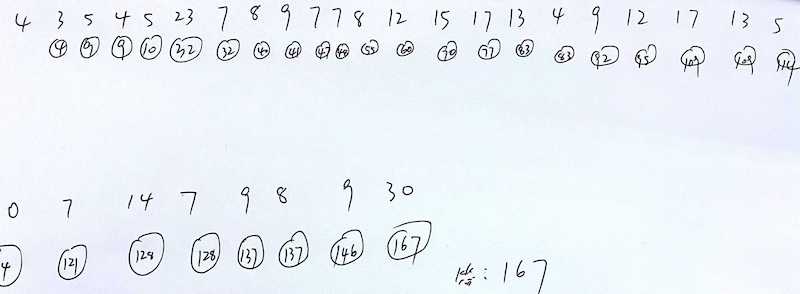 4 3 5 4 5 23 7 8 9 7 7 8 12 15 17 13 4 9 12 17 13 5
4 9 9 10 32 32 40 41 47 48 55 60 70 77 83 83 92 95 109 109 114
0 7 14 7 9 8 9 30
4 121 128 128 137 137 146 167
: 167